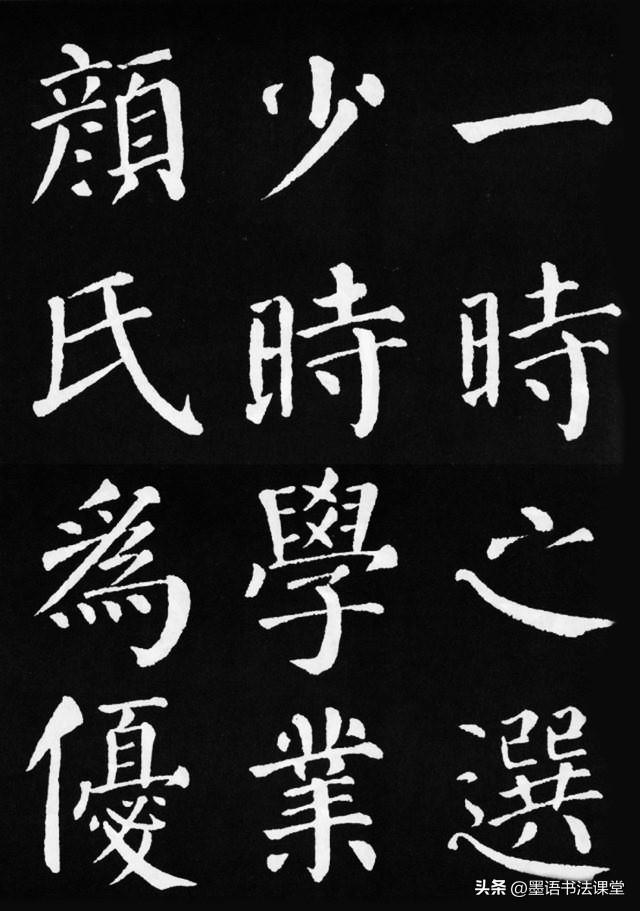 一時之選
少時學業
顏氏為優
头条 @墨语书法课堂